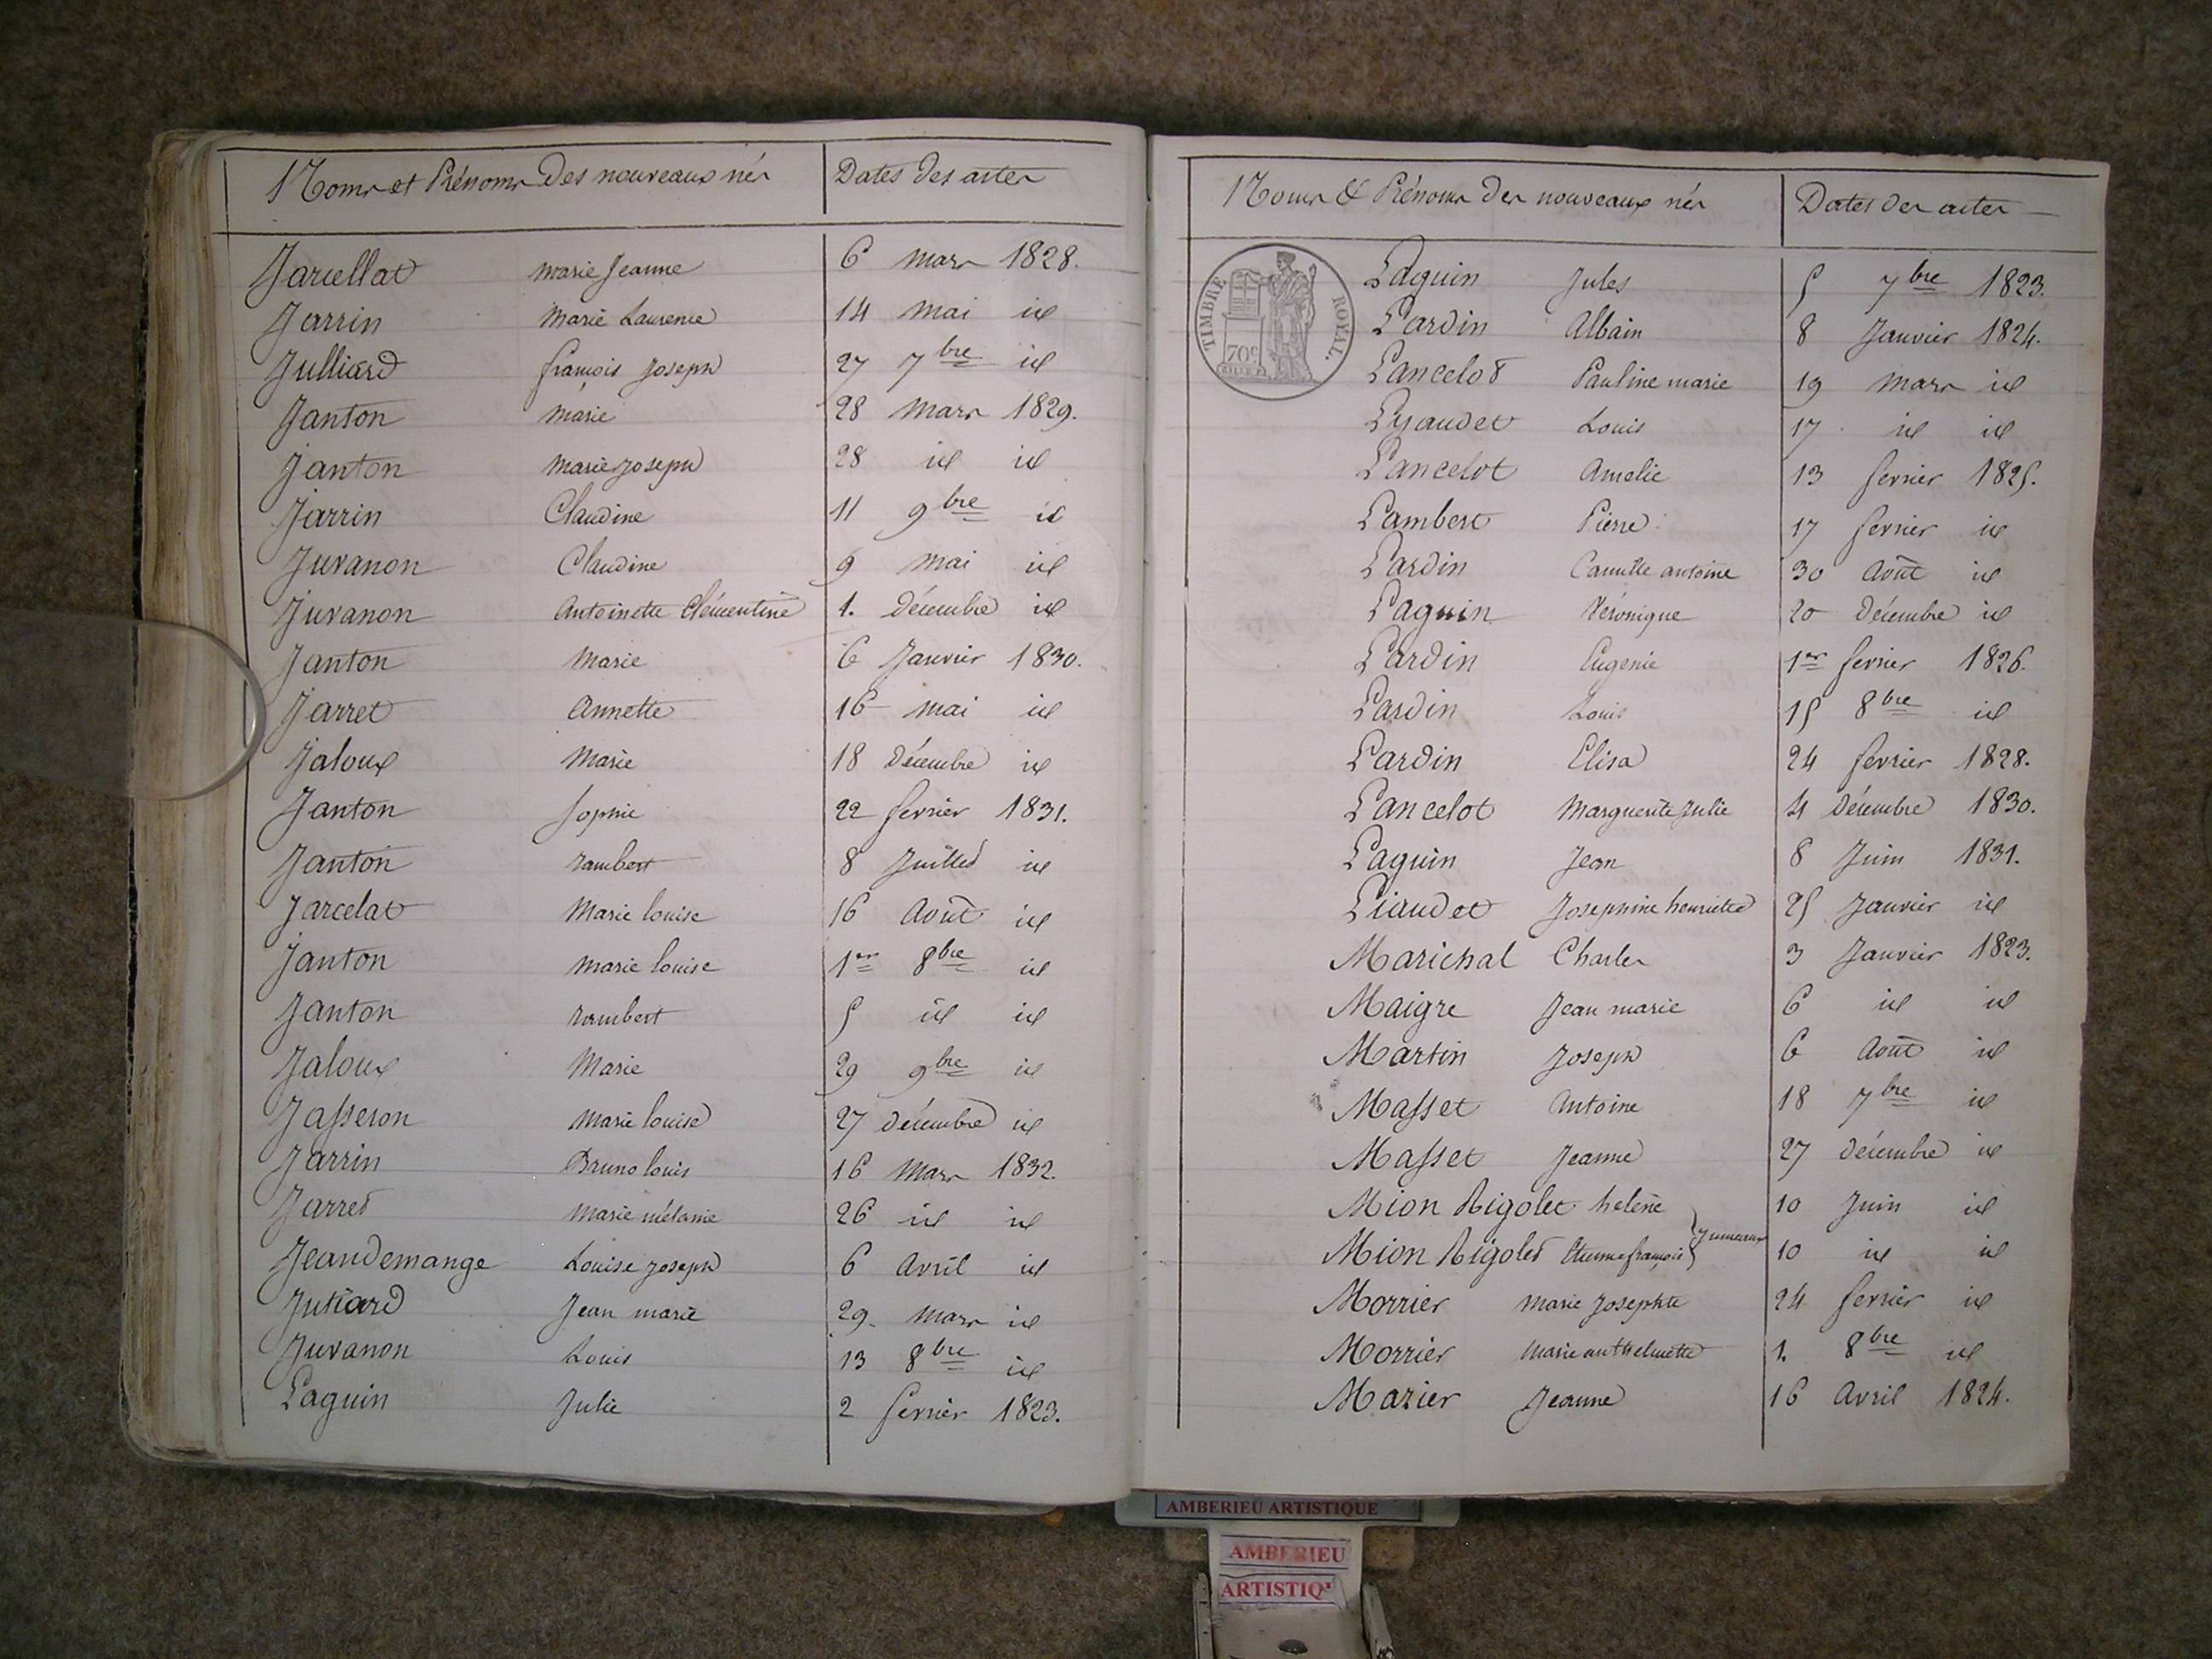 Noms et Prénoms des nouveaux nés Dates des actes
Jarcellat marie Jeanne 6 mars 1828.
Jarrin Marie Laurence 14 mai id
Julliard françois Joseph 27 7bre id
Janton marie 28 mars 1829.
Janton Marie Joseph 28 id id
Jarrin Claudine 11 9bre id
Juvanon Claudine 9 mai id
Juvanon Antoinette Clémentine 1. Décembre id
Janton Marie 6 Janvier 1830.
Jarret Annette 16 mai id
Jaloux Marie 18 Décembre id
Janton Sophie 22 fevrier 1831.
Janton rambert 8 Juillet id
Jarcelat Marie louise 16 Août id
Janton marie louise 1er 8bre id
Janton rambert 5 id id
Jaloux Marie 29 9bre id
Jasseron Marie louise 27 Décembre id
Jarrin Bruno louis 16 Mars 1832.
Jarret Marie mélanie 26 id id
Jeandemange Louise Joseph 6 Avril id
Jutiard Jean marie 29. Mars id
Juvanon Louis 13 8bre id
Laguin Julie 2 fevrier 1823.
Noms & Prénoms des nouveaux nés Dates des actes
TIMBRE ROYAL.
70c
Laguin Jules 5 7bre 1823.
Lardin Albain 8 Janvier 1824.
Lancelot Pauline marie 19 mars id
Lyaudet Louis 17 id id
Lancelot Amelie 13 fevrier 1825.
Lambert Pierre 17 fevrier id
Lardin Camille antoine 30 Août id
Laguin Véronique 20 Décembre id
Lardin Eugenie 1er fevrier 1826.
Lardin Louis 15 8bre id
Lardin Elisa 24 fevrier 1828.
Lancelot Marguerite Julie 4 Décembre 1830.
Laguin Jean 8 Juin 1831.
Liaudet Josephine henriette 25 Janvier id
Marichal Charles 3 Janvier 1823.
Maigre Jean marie 6 id id
Martin Joseph 6 Août id
Masset Antoine 18 7bre id
Masset Jeanne 27 Décembre id
Mion Rigolet helène 10 Juin id
Jumeaux
Mion Rigolet Etienne françois 10 id id
Morrier Marie Josephte 24 fevrier id
Morrier Marie anthelmette 1. 8bre id
Mazier Jeanne 16 Avril 1824.
AMBERIEU ARTISTIQUE
AMBERIEU
ARTISTIQ